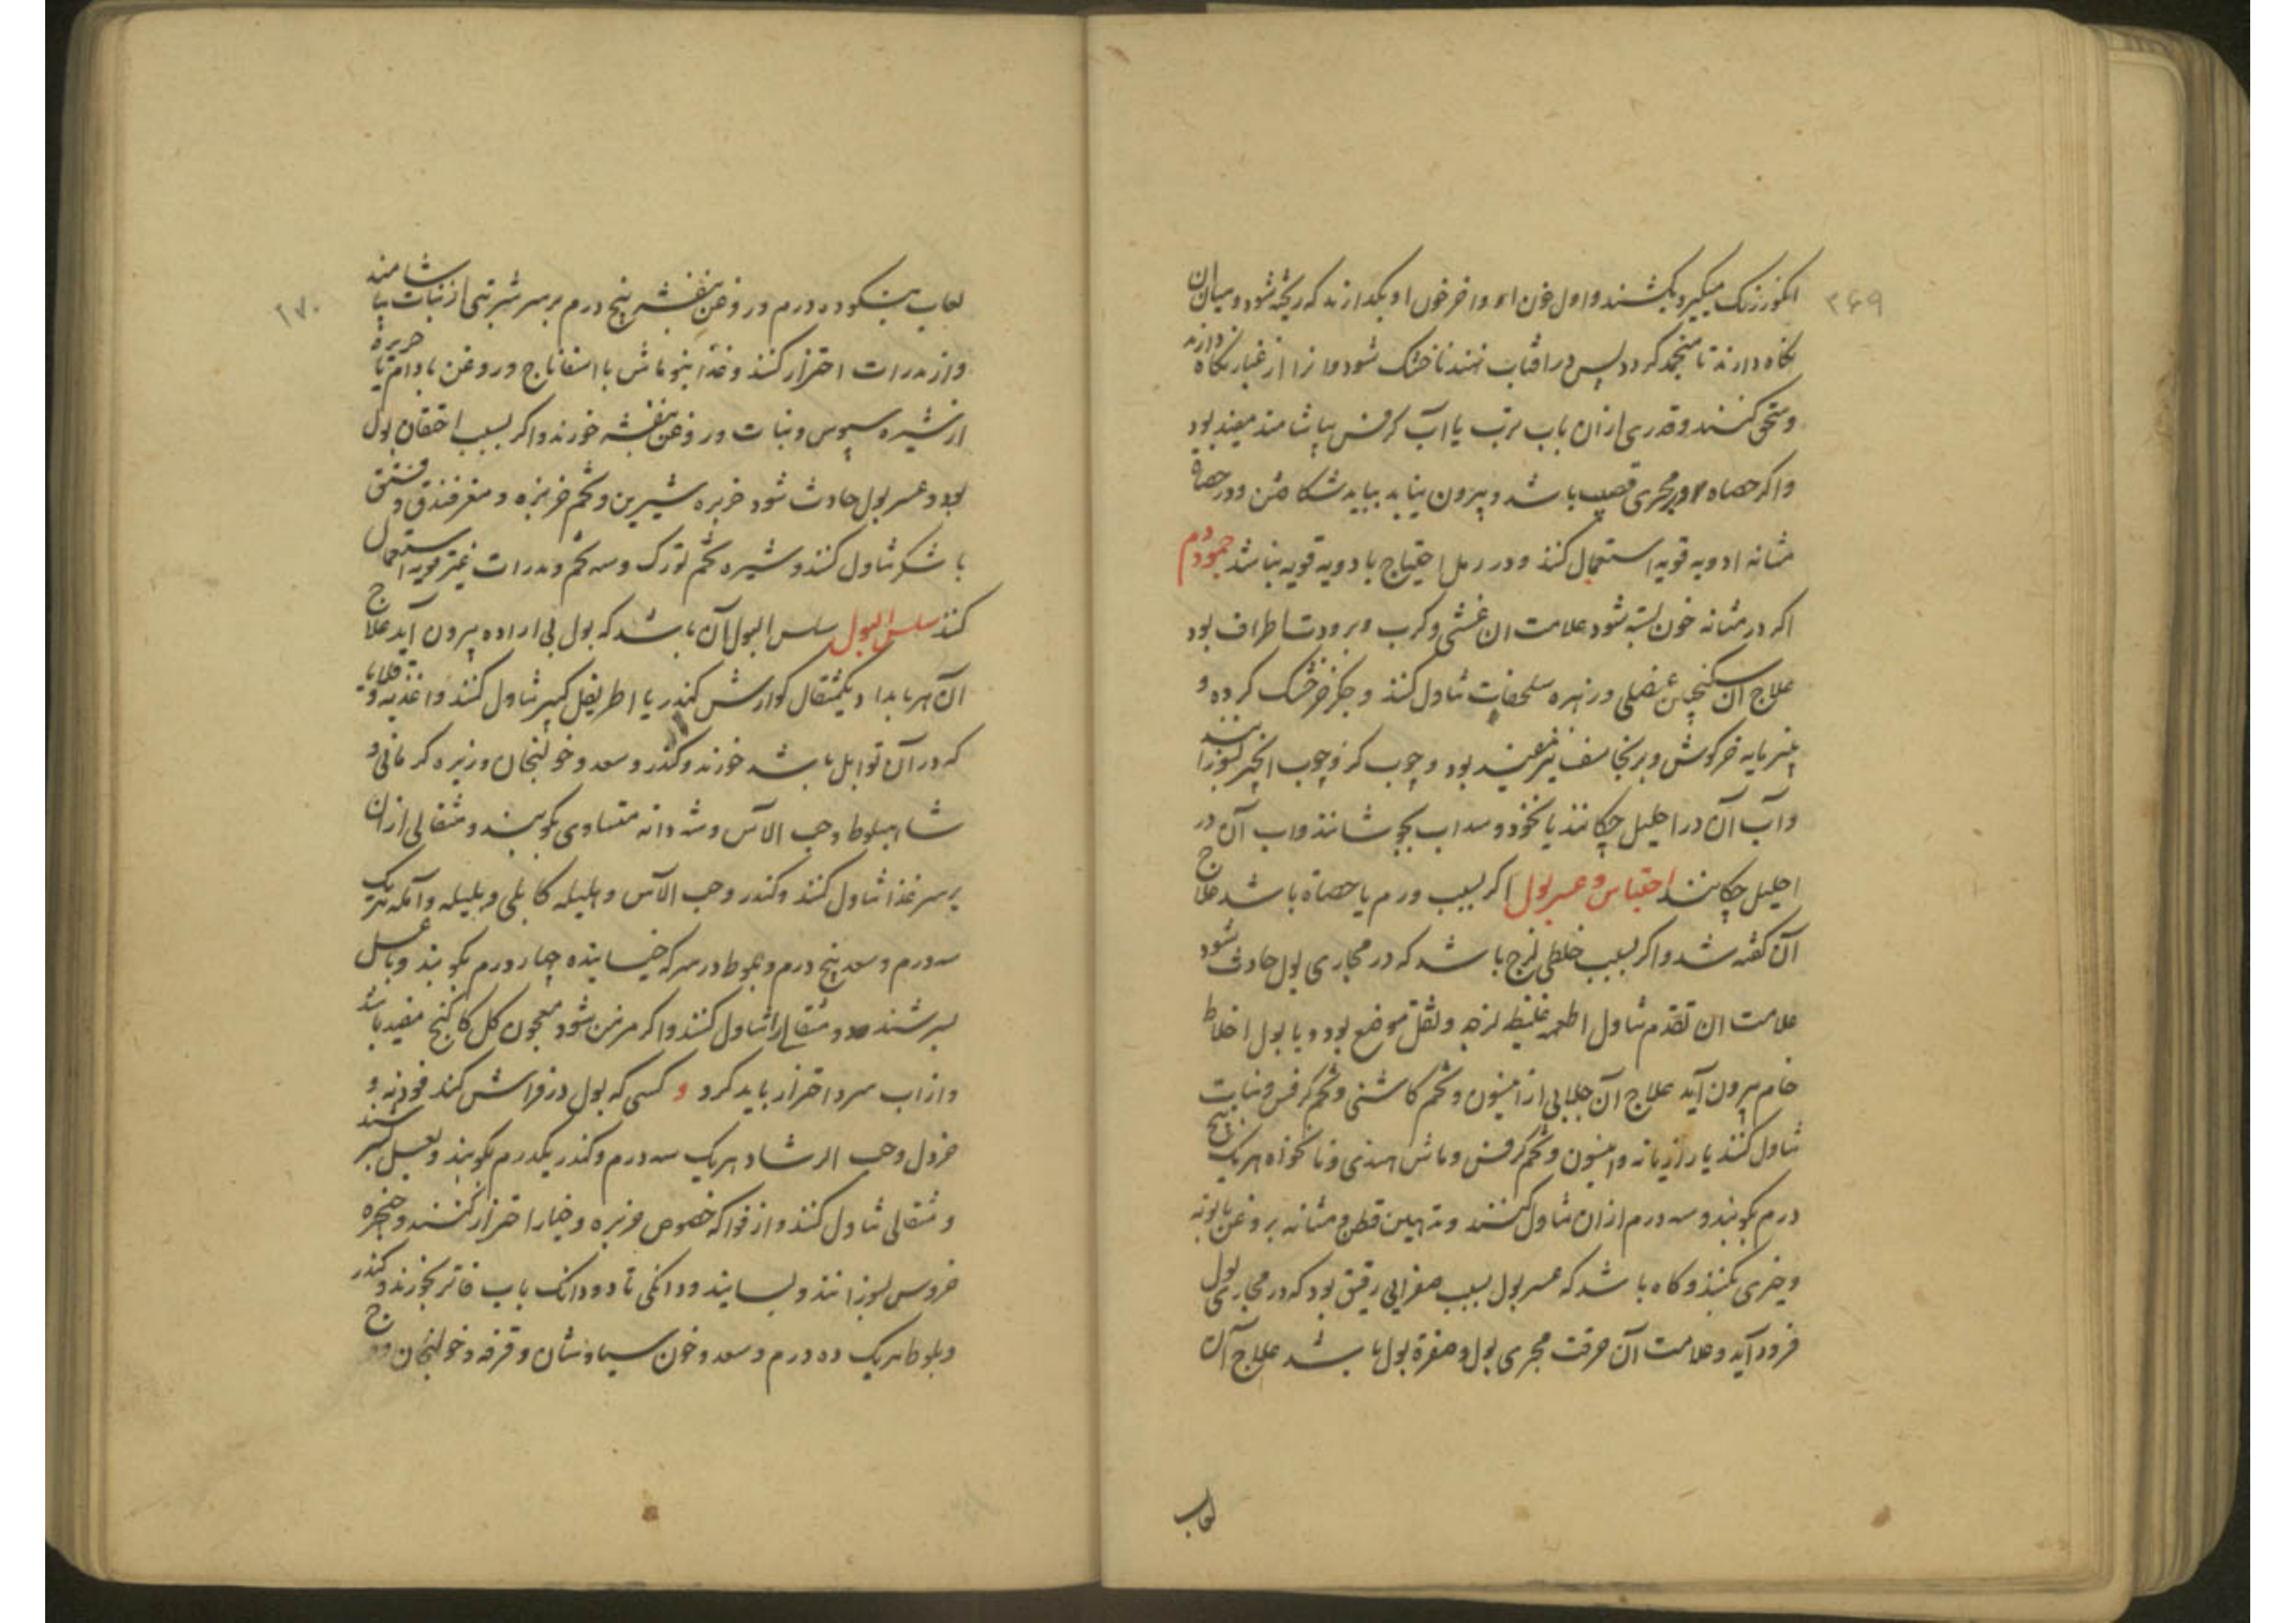 ۲۶۹
انکور زنک میکیرد بکشند و اول خون او و اخر خون او بکدارند که ریخته شود و میان آن
نکاه دارند تا منجمد کردد پس در افتاب نهند تا خشک شود و انرا از غبار نکاه دارند
و سحق کنند و قدری از ان باب ترب یا آب کرفس بیاشامند مفید بود
و اکر حصاه در مجری قضیب باشد و بیرون نیاید بباید شکافتن و در حصاة
مثانه ادویه قویه استعمال کنند و در رمل احتیاج بادویه قویه نباشد جمود دم
اکر در مثانه خون بسته شود علامت ان غشی و کرب و برودت اطراف بود
علاج آن سکنجبین عنصلی و زهره سلحفات تناول کنند و جکر خر خشک کرده و
پنیر مایه خرکوش و برنجاسف نیز مفید بود و چوب کز و چوب انجیر بسوزانند
و آب آن در احلیل چکانند یا نخود و سداب بجوشانند و اب آن در
احلیل چکانند احتباس و عسر بول اکر بسبب ورم یا حصاة باشد علاج
آن کفته شد و اکر بسبب خلطی لزج باشد که در مجاری بول حادث شود
علامت ان تقدم تناول اطعمه غلیظ لزجه و ثقل موضع بود و با بول اخلاط
خام بیرون آید علاج آن جلابی از انیسون و تخم کاشنی و تخم کرفس و نبات
تناول کنند یا رازیانه و انیسون و تخم کرفس و ماش هندی و نانخواه هر یک پنج
درم بکوبند و سه درم از ان تناول کنند و تدهین قطن و مثانه بروغن بابونه
و خیری بکنند و کاه باشد که عسر بول بسبب صفرایی رقیق بود که در مجاری بول
فرود آید و علامت آن حرقت مجری بول و صفرة بول باشد علاج آن
لعاب
۲۷۰
لعاب بنکو ده درم و روغن بنفشه پنج درم بر سر شربتی از نبات بیاشامند
و از مدرات احتراز کنند و غذا بنو ماش با اسفاناج و روغن بادام یا حریره
از شیره سپوس و نبات و روغن بنفشه خورند و اکر بسبب احتقان بول
بود و عسر بول حادث شود خربزه شیرین و تخم خربزه و مغز فندق و فستق
با شکر تناول کنند و شیره تخم تورک و سه تخم و مدرات غیر قویه استعمال
کنند سلس البول سلس البول آن باشد که بول بی اراده بیرون آید علاج
آن هر بامداد یکمثقال کوارش کندر یا اطریفل کبیر تناول کنند و اغذیه و قلایا
که در آن توابل باشد خورند و کندر و سعد و خولنجان و زیره کرمانی و
شاهبلوط و حب الآس و شهدانه متساوی بکوبند و مثقالی از ان
بر سر غذا تناول کنند و کندر و حب الآس و هلیله کابلی و بلیله و آمله هر یک
سه درم و سعد پنج درم و بلوط در سرکه خیسانیده چهار درم بکوبند و با عسل
بسرشند و دو مثقال را تناول کنند و اکر مزمن شود معجون کل کاکنج مفید باشد
و از اب سرد احتراز باید کرد و کسی که بول در فراش کند فودنه و
خردل و حب الرشاد هریک سه درم و کندر یکدرم بکوبند و بعسل بسرشند
و مثقالی تناول کنند و از فواکه خصوص خربزه و خیار احتراز کنند و حنجره
خروس بسوزانند و بسایند و دانکی تا دو دانک باب فاتر بخورند و کندر
و بلوط هریک ده درم و سعد و خون سیاوشان و قرفه و خولنجان و وج